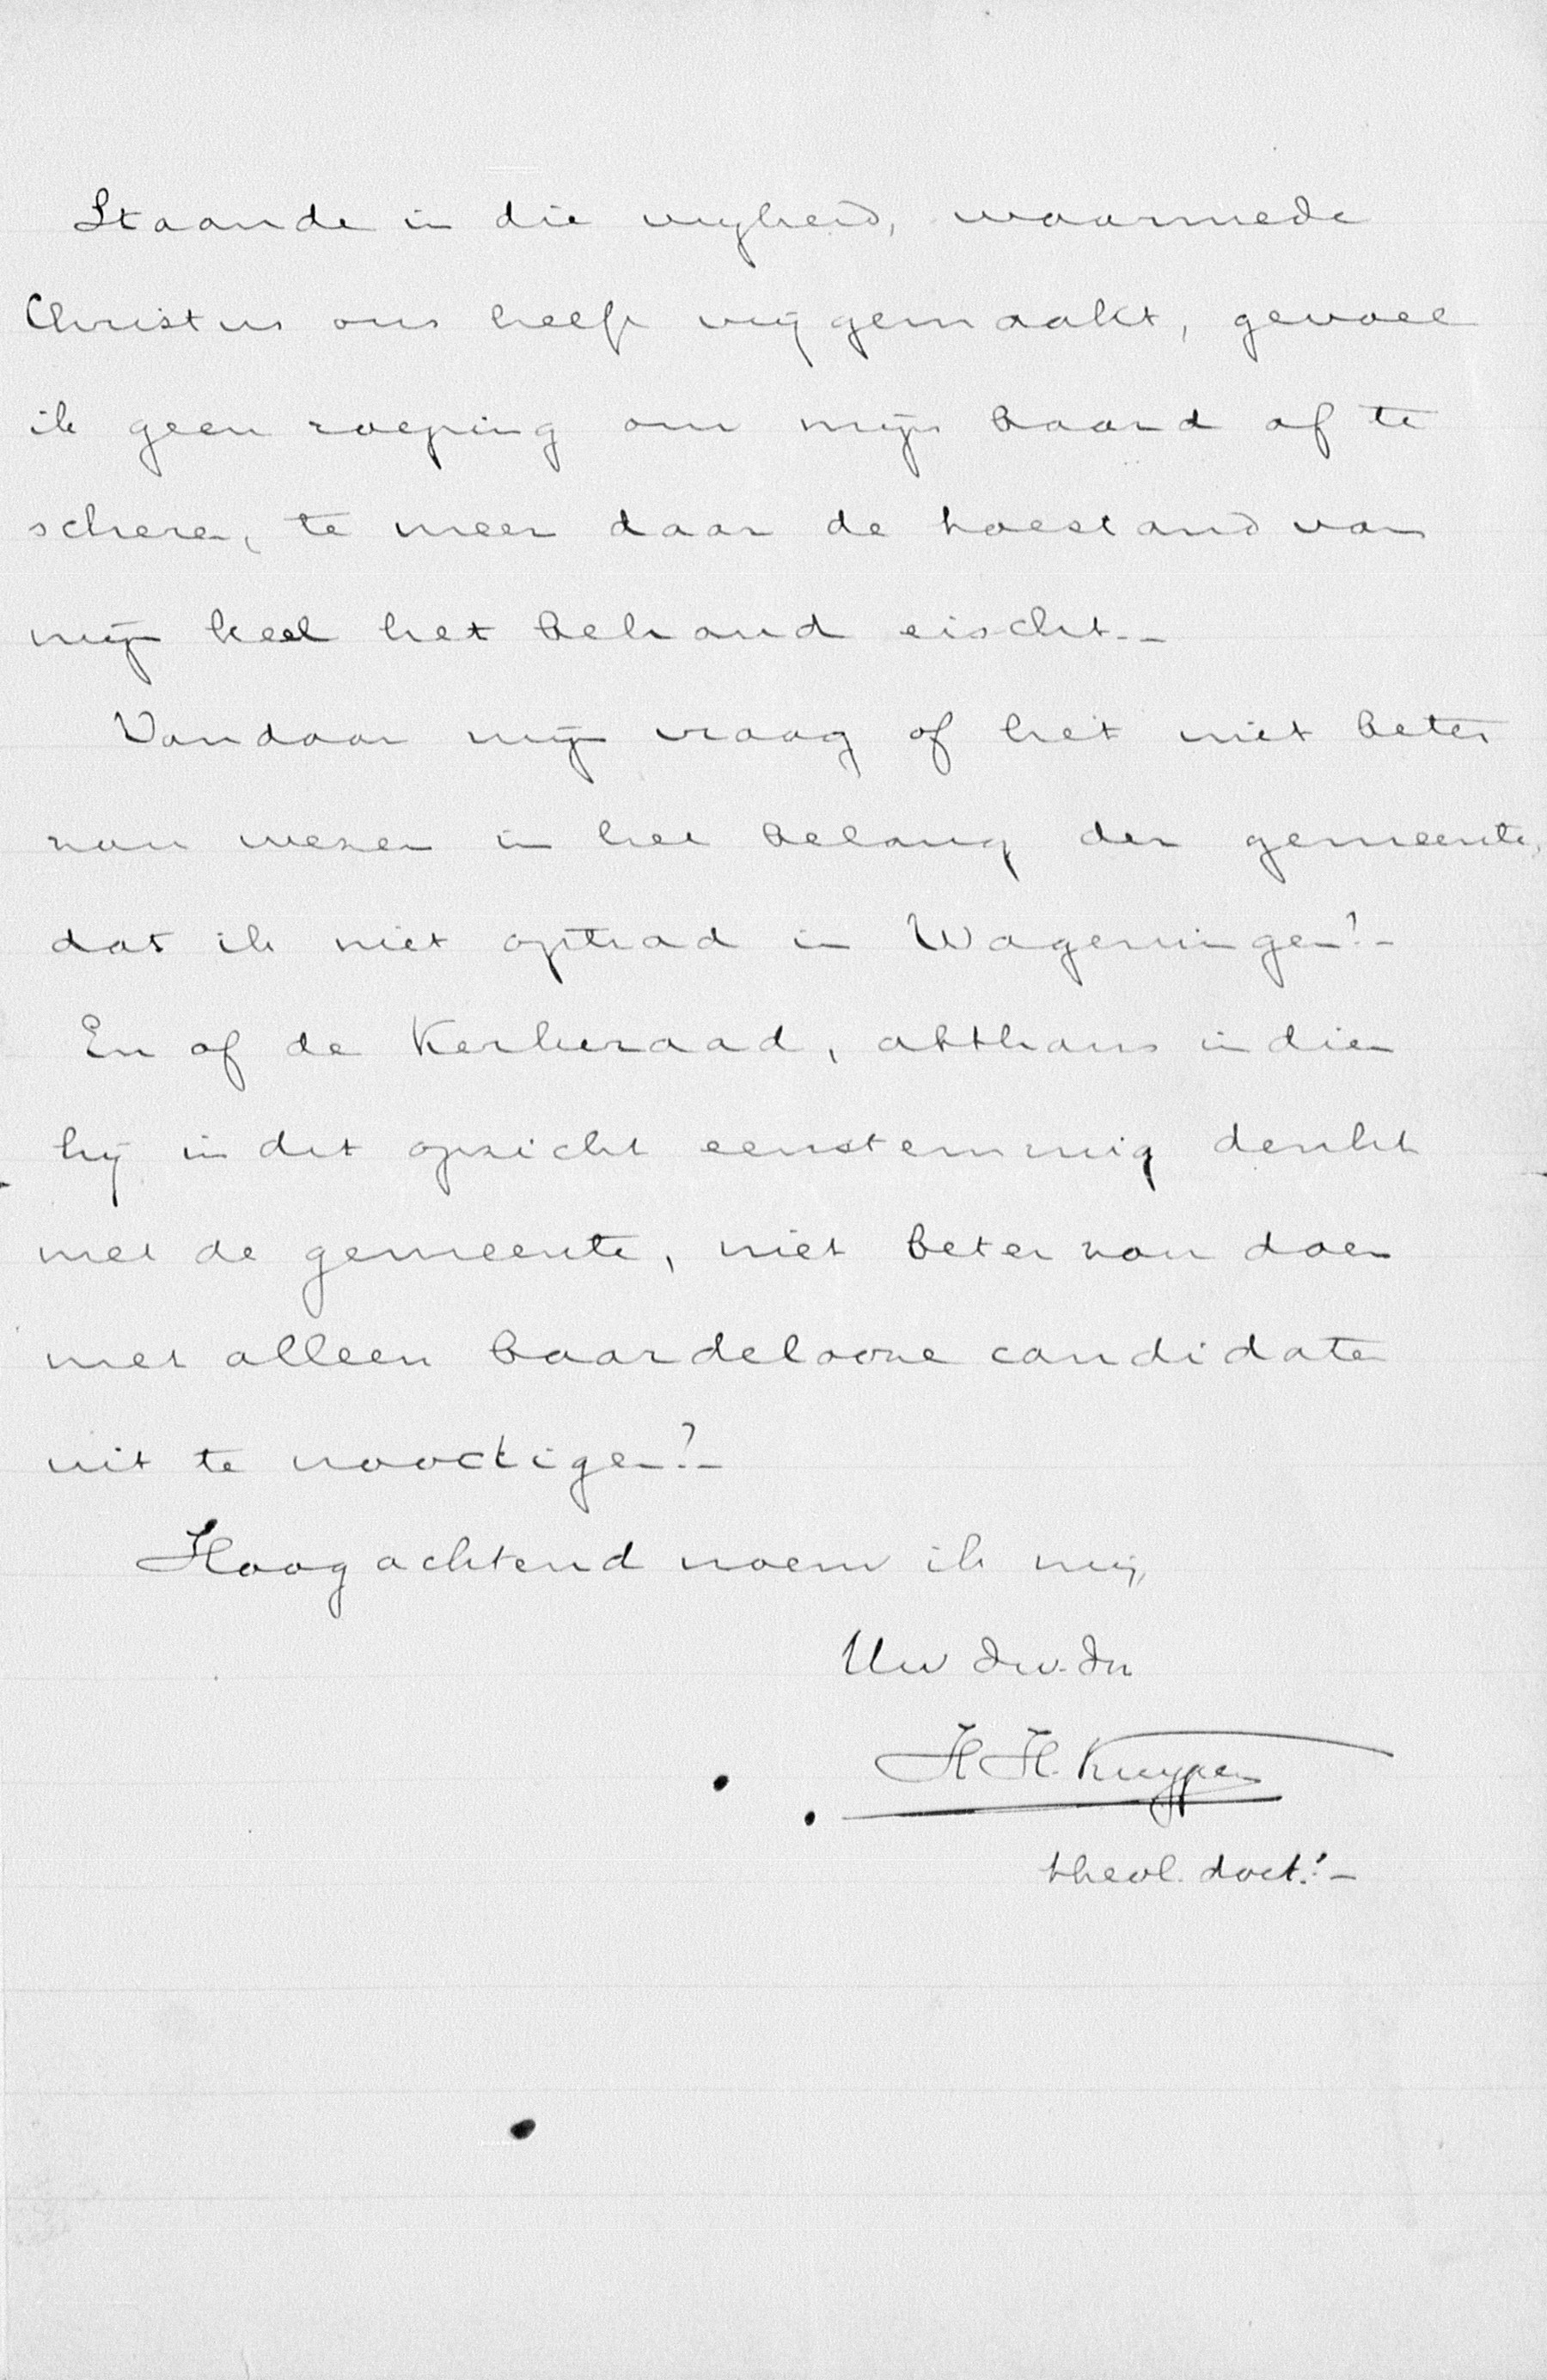 Staande in die vrijheid, waarmede
Christus ons heeft vrijgemaakt, gevoel
ik geen roeping om mijn baard af te
scheren, te meer daar de toestand van
mijn keel het behoud eischt.-
Vandaar mijn vraag of het niet beter
zou wezen in het belang der gemeente,
dat ik niet optrad in Wageningen?-
En of de Kerkeraad, altthans indien
hij in dit opzicht eenstemmig denkt
met de gemeente, niet beter zou doen
met alleen baardelooze candidaten
uit te noodigen?-
Hoogachtend noem ik mij,
Uw dw. dr
H H. Kuyper
theol. doct.!-